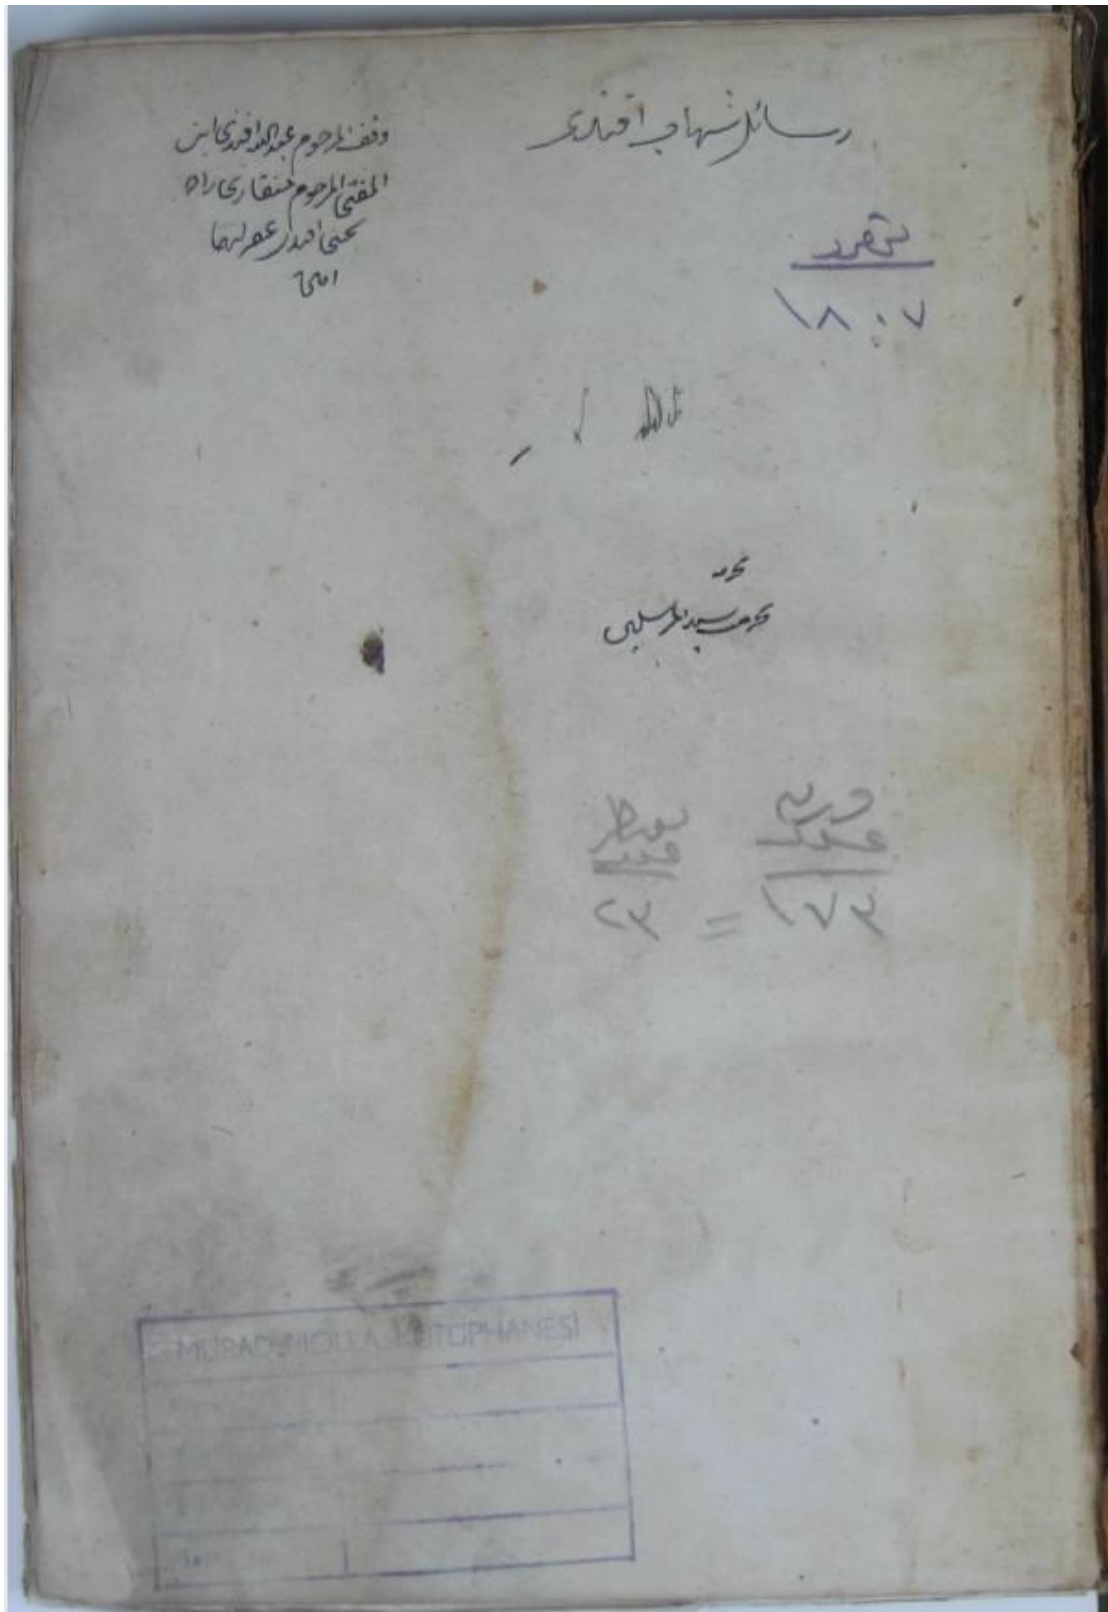 رسائل شهاب افندی
وقف المرحوم عبدالله افندی ابن
المفتی المرحوم منقاری زاده
یحیی افندی عفی عنهما
امین
نومرو
١٨٠٧
بحرمة سید المرسلین
ورق
عدد
١٧٣
سطر
عدد
٢٣
=
MURAD MOLLA KÜTÜPHANESİ